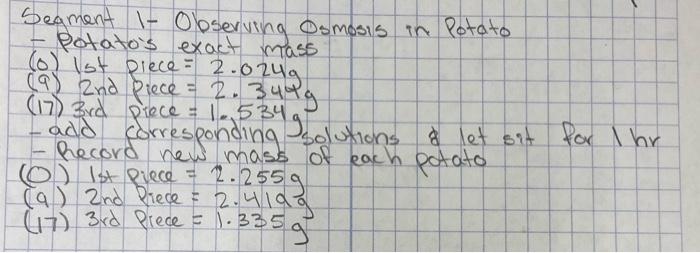 Segment 1- Observing Osmosis in Potato
- Potato's exact mass
(0) 1st piece = 2.024g
(9) 2nd Piece = 2.344g
(17) 3rd piece = 1.534g
- add corresponding solutions & let sit for 1 hr
- Record new mass of each potato
(0) 1st Piece = 2.255g
(9) 2nd Piece = 2.419g
(17) 3rd Piece = 1.335g